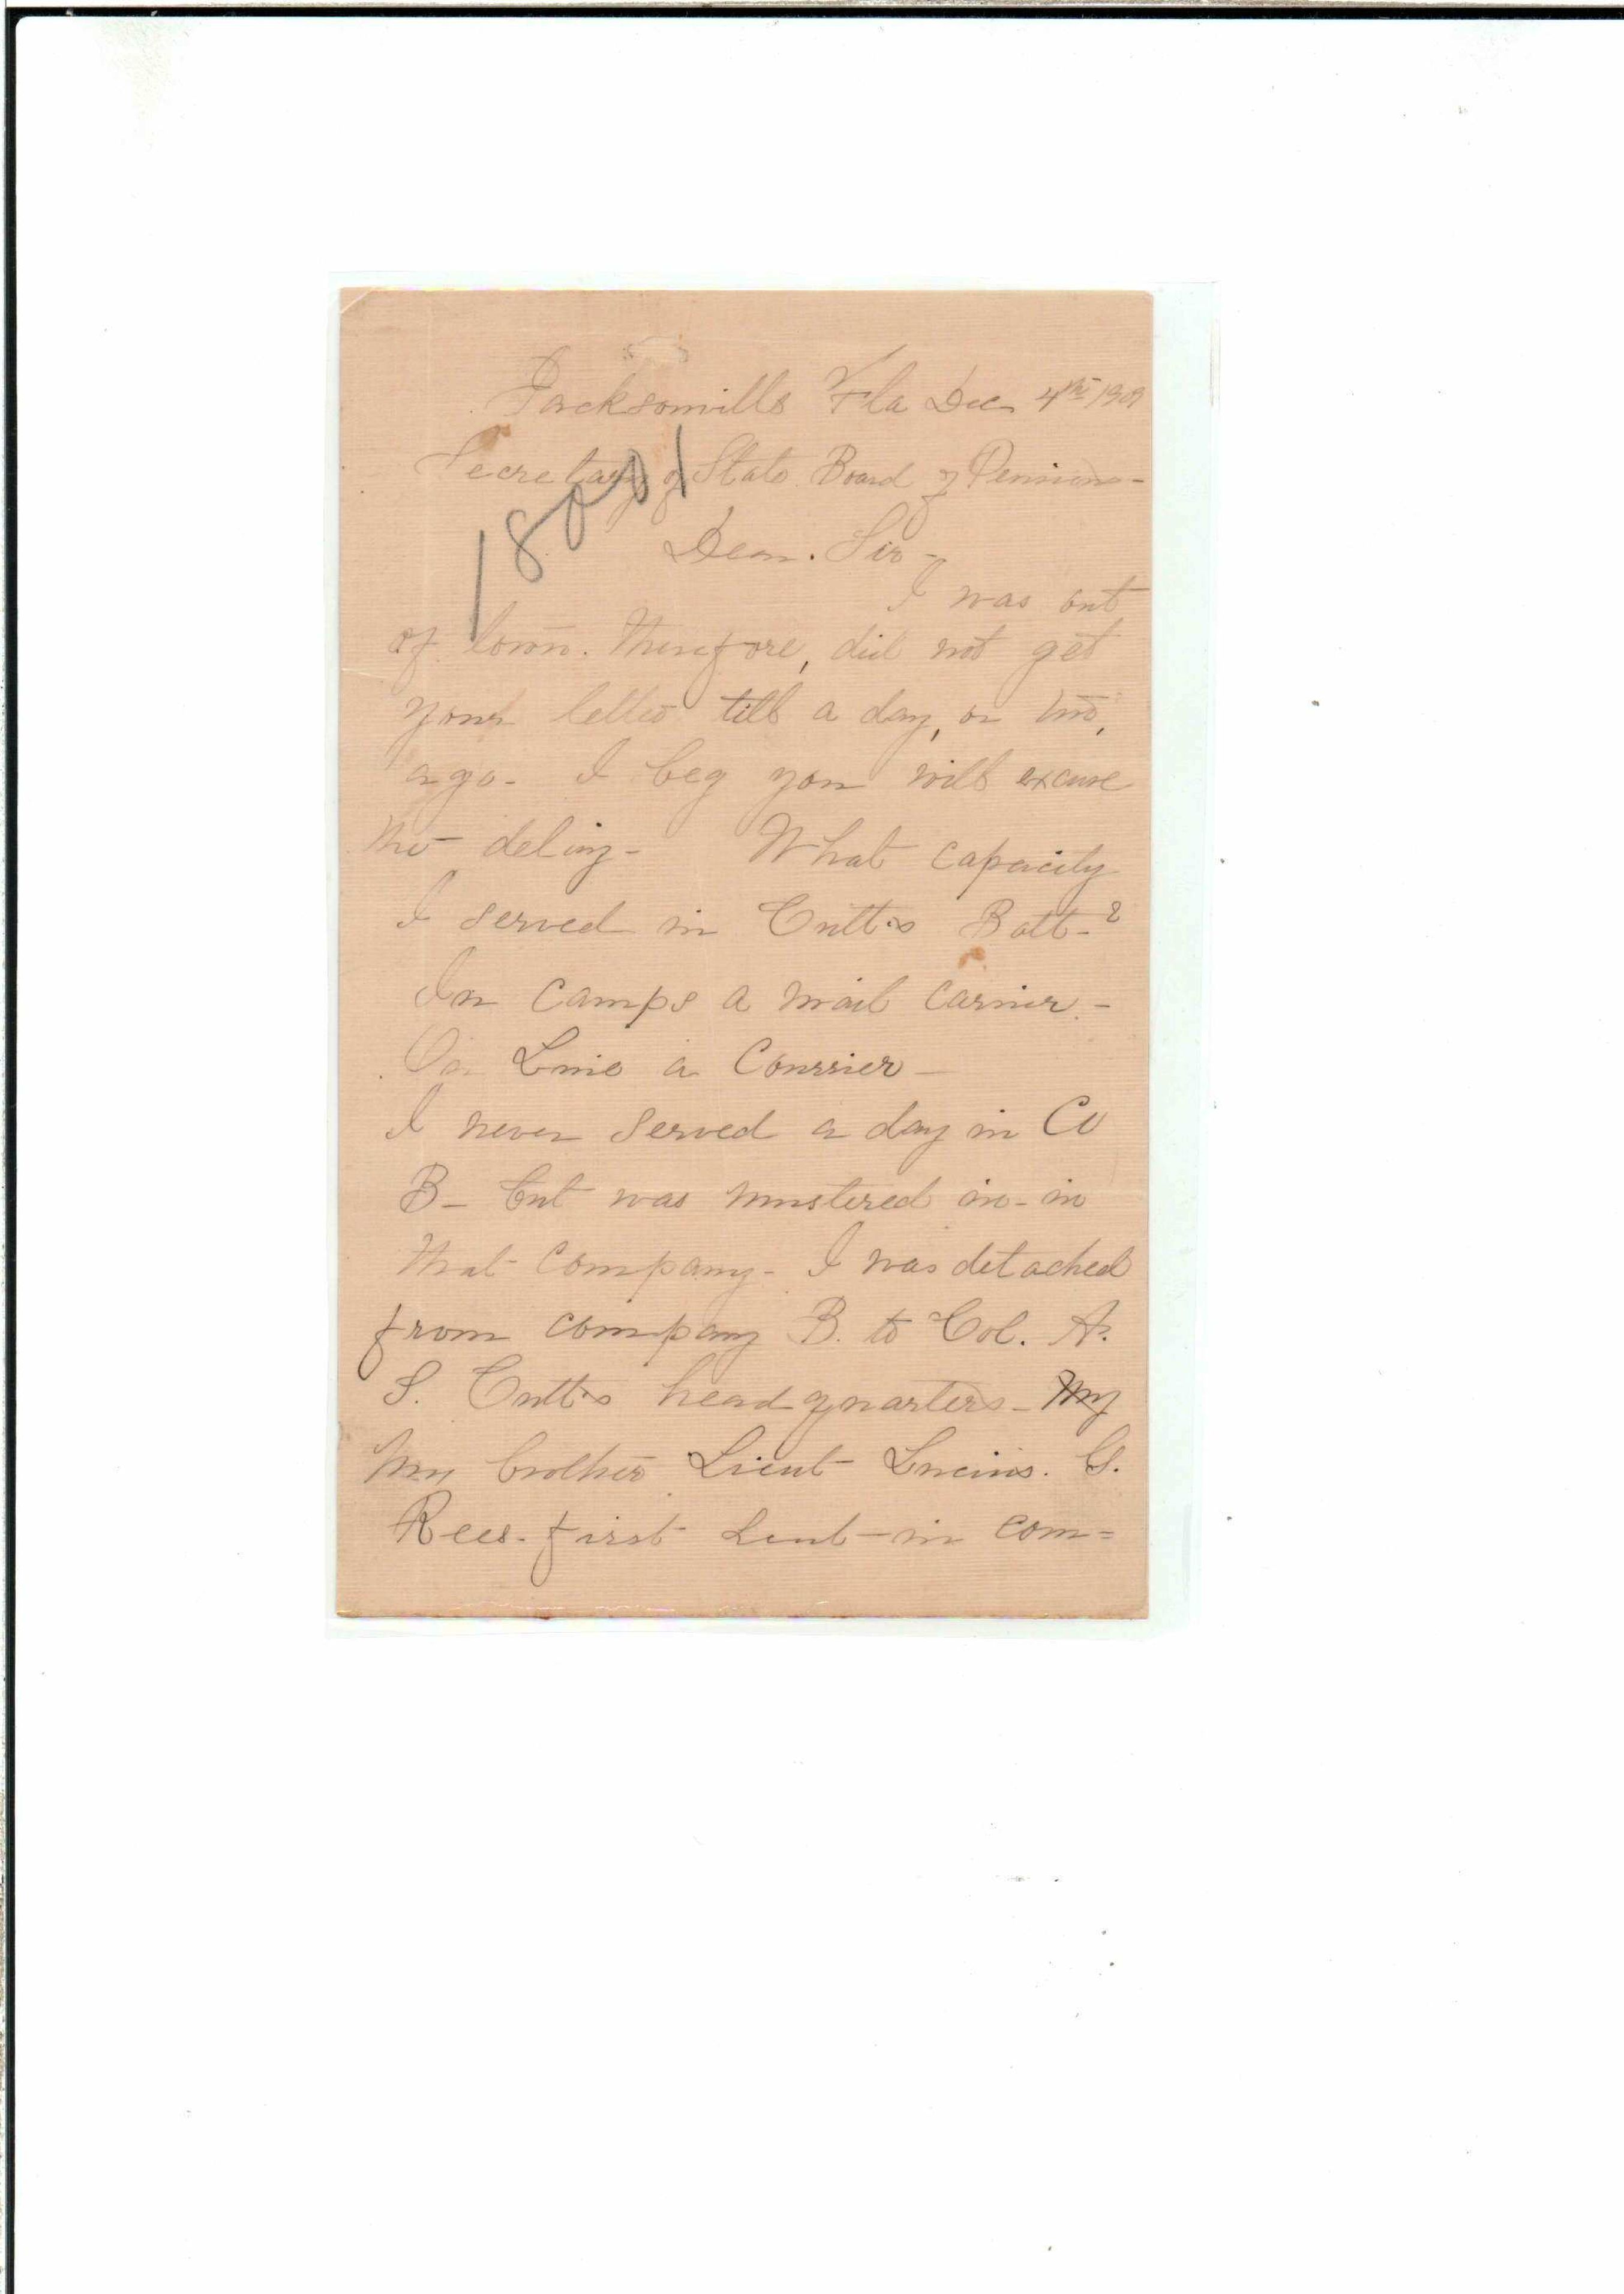 Jacksonville Fla Dec 4th 1909
Secretary of State Board of Pensions-
18001
Dear. Sir-
I was out
of town. Therefore, did not get
your letter till a day, or two,
ago- I beg you will excuse
the delay- What capacity
I served in Cutt's Batt-?
In camps a mail carrier.-
On Line a Courrier-
I never served a day in Co
B- but was mustered in-in
that company- I was detached
from company B. to Col. A.
S. Cutt's headquarters- My
My brother Lieut- Lucius. G.
Rees- first Leut-in com=